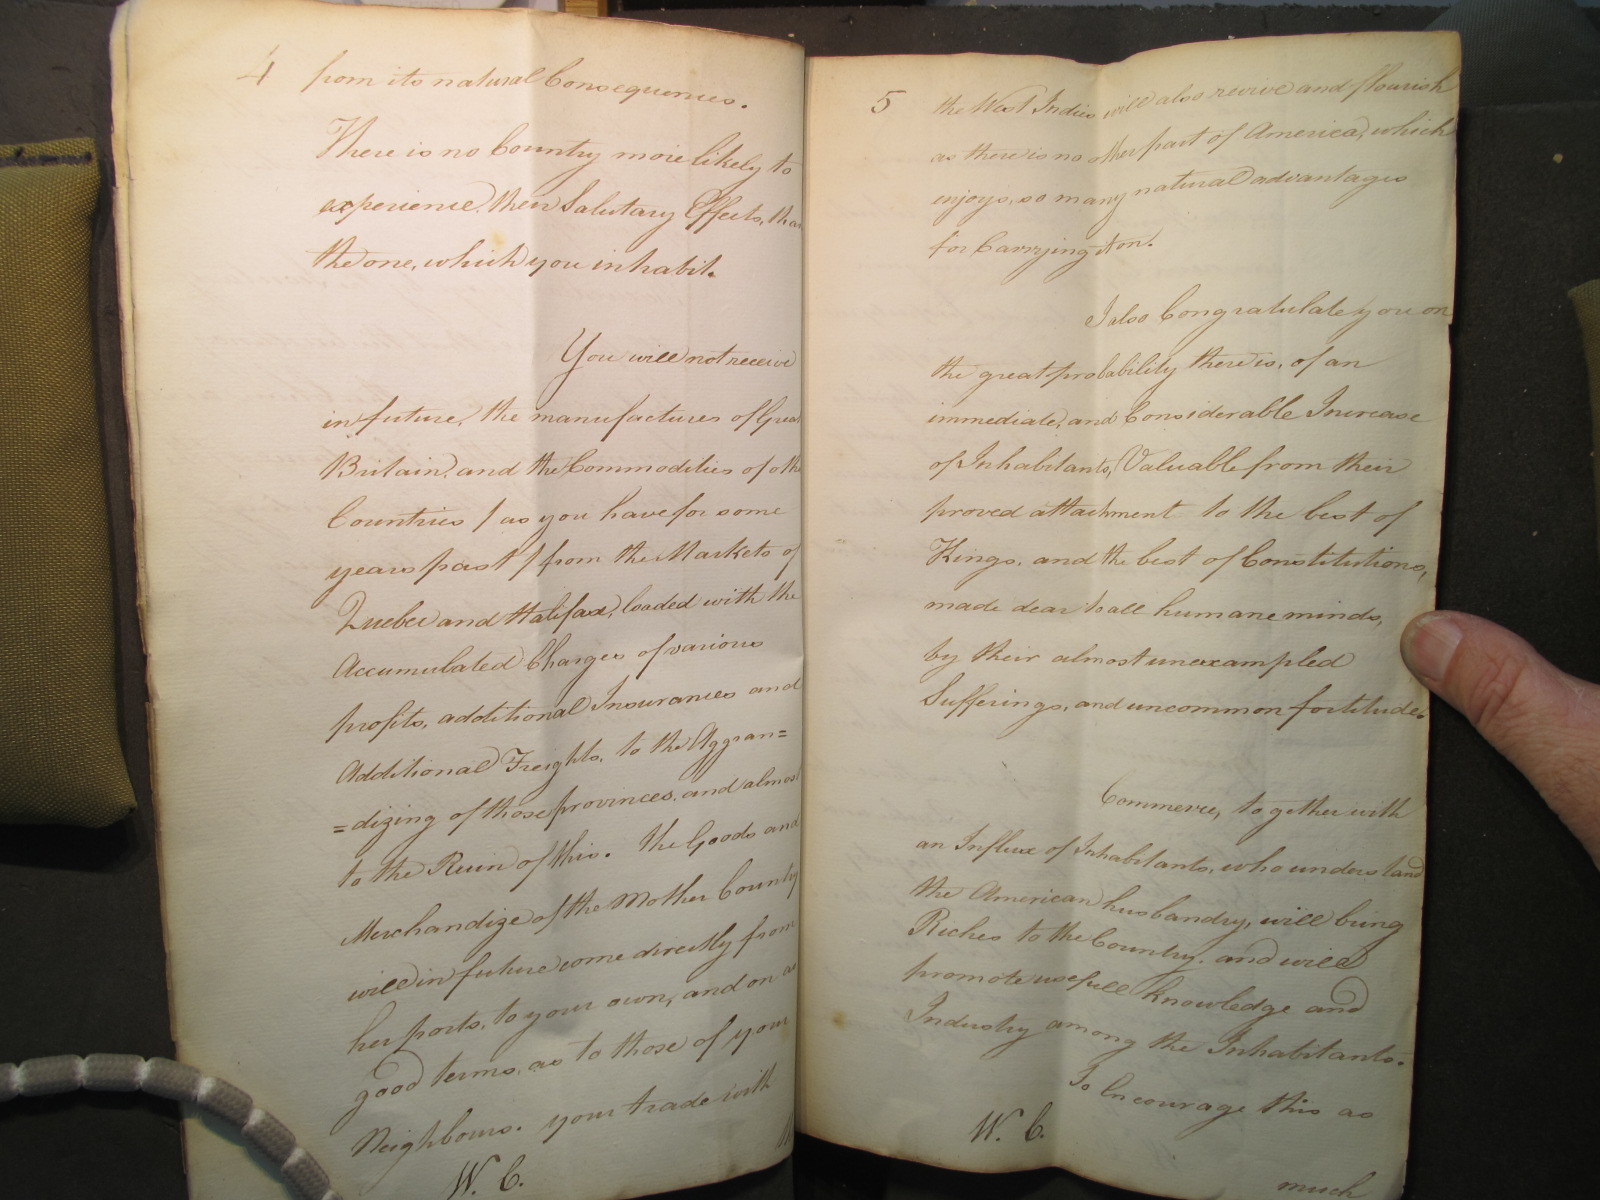 4
from its natural Consequences.
There is no Country more likely to
experience their Salutary Effects, than
the one, which you inhabit.
You will not receive
in future, the manufactures of Great
Britain, and the Commodities of oth
Countries / as you have for some
years past / from the Markets of
Quebec and Halifax, loaded with the
Accumulated Charges of various
profits, additional Insurances and
Additional Freights, to the Aggran=
=dizing of those provinces, and almost
to the Ruin of this. The Goods and
Merchandize of the Mother Country
will in future come directly from
her ports, to your own, and on as
good terms, as to those of your
Neighbours. your trade with
W. C.
5
the West Indies will also revive and flourish
as there is no other part of America, which
enjoys, so many natural advantages
for Carrying it on.
I also Congratulate you on
the great probability there is, of an
immediate, and Considerable Increase
of Inhabitants, Valuable from their
proved attachment to the best of
Kings, and the best of Constitutions,
made dear to all humane minds,
by their almost unexampled
Sufferings, and uncommon fortitude.
Commerce, together with
an Influx of Inhabitants, who understand
the American husbandry, will bring
Riches to the Country, and will
promote usefull knowledge and
Industry among the Inhabitants.
To Encourage this as
W. C.
much